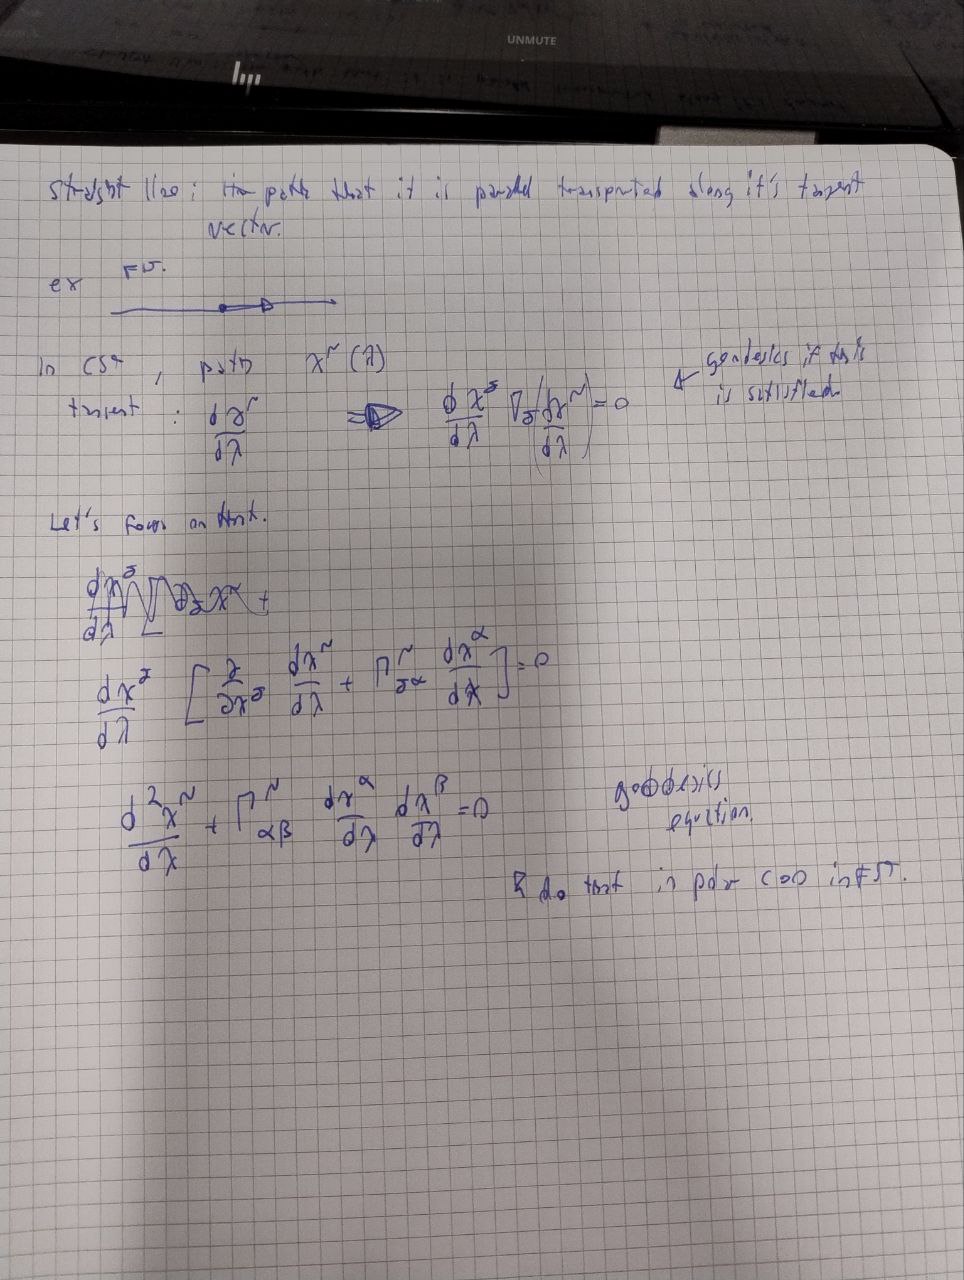 UNMUTE
hp
straight line : the path that it is parallel transported along it's tangent
vector.
ex FS.
In CS^2, path x^μ(λ)
tangent : dx^μ/dλ ⇒ dx^σ/dλ ∇_σ (dx^μ/dλ) = 0
geodesics if this
is satisfied
Let's focus on that.
dx^σ/dλ [∂/∂x^σ dx^μ/dλ + Γ^μ_σα dx^α/dλ] = 0
d^2x^μ/dλ + Γ^μ_αβ dx^α/dλ dx^β/dλ = 0
geodesics
equation.
do that in polar coo in FS.